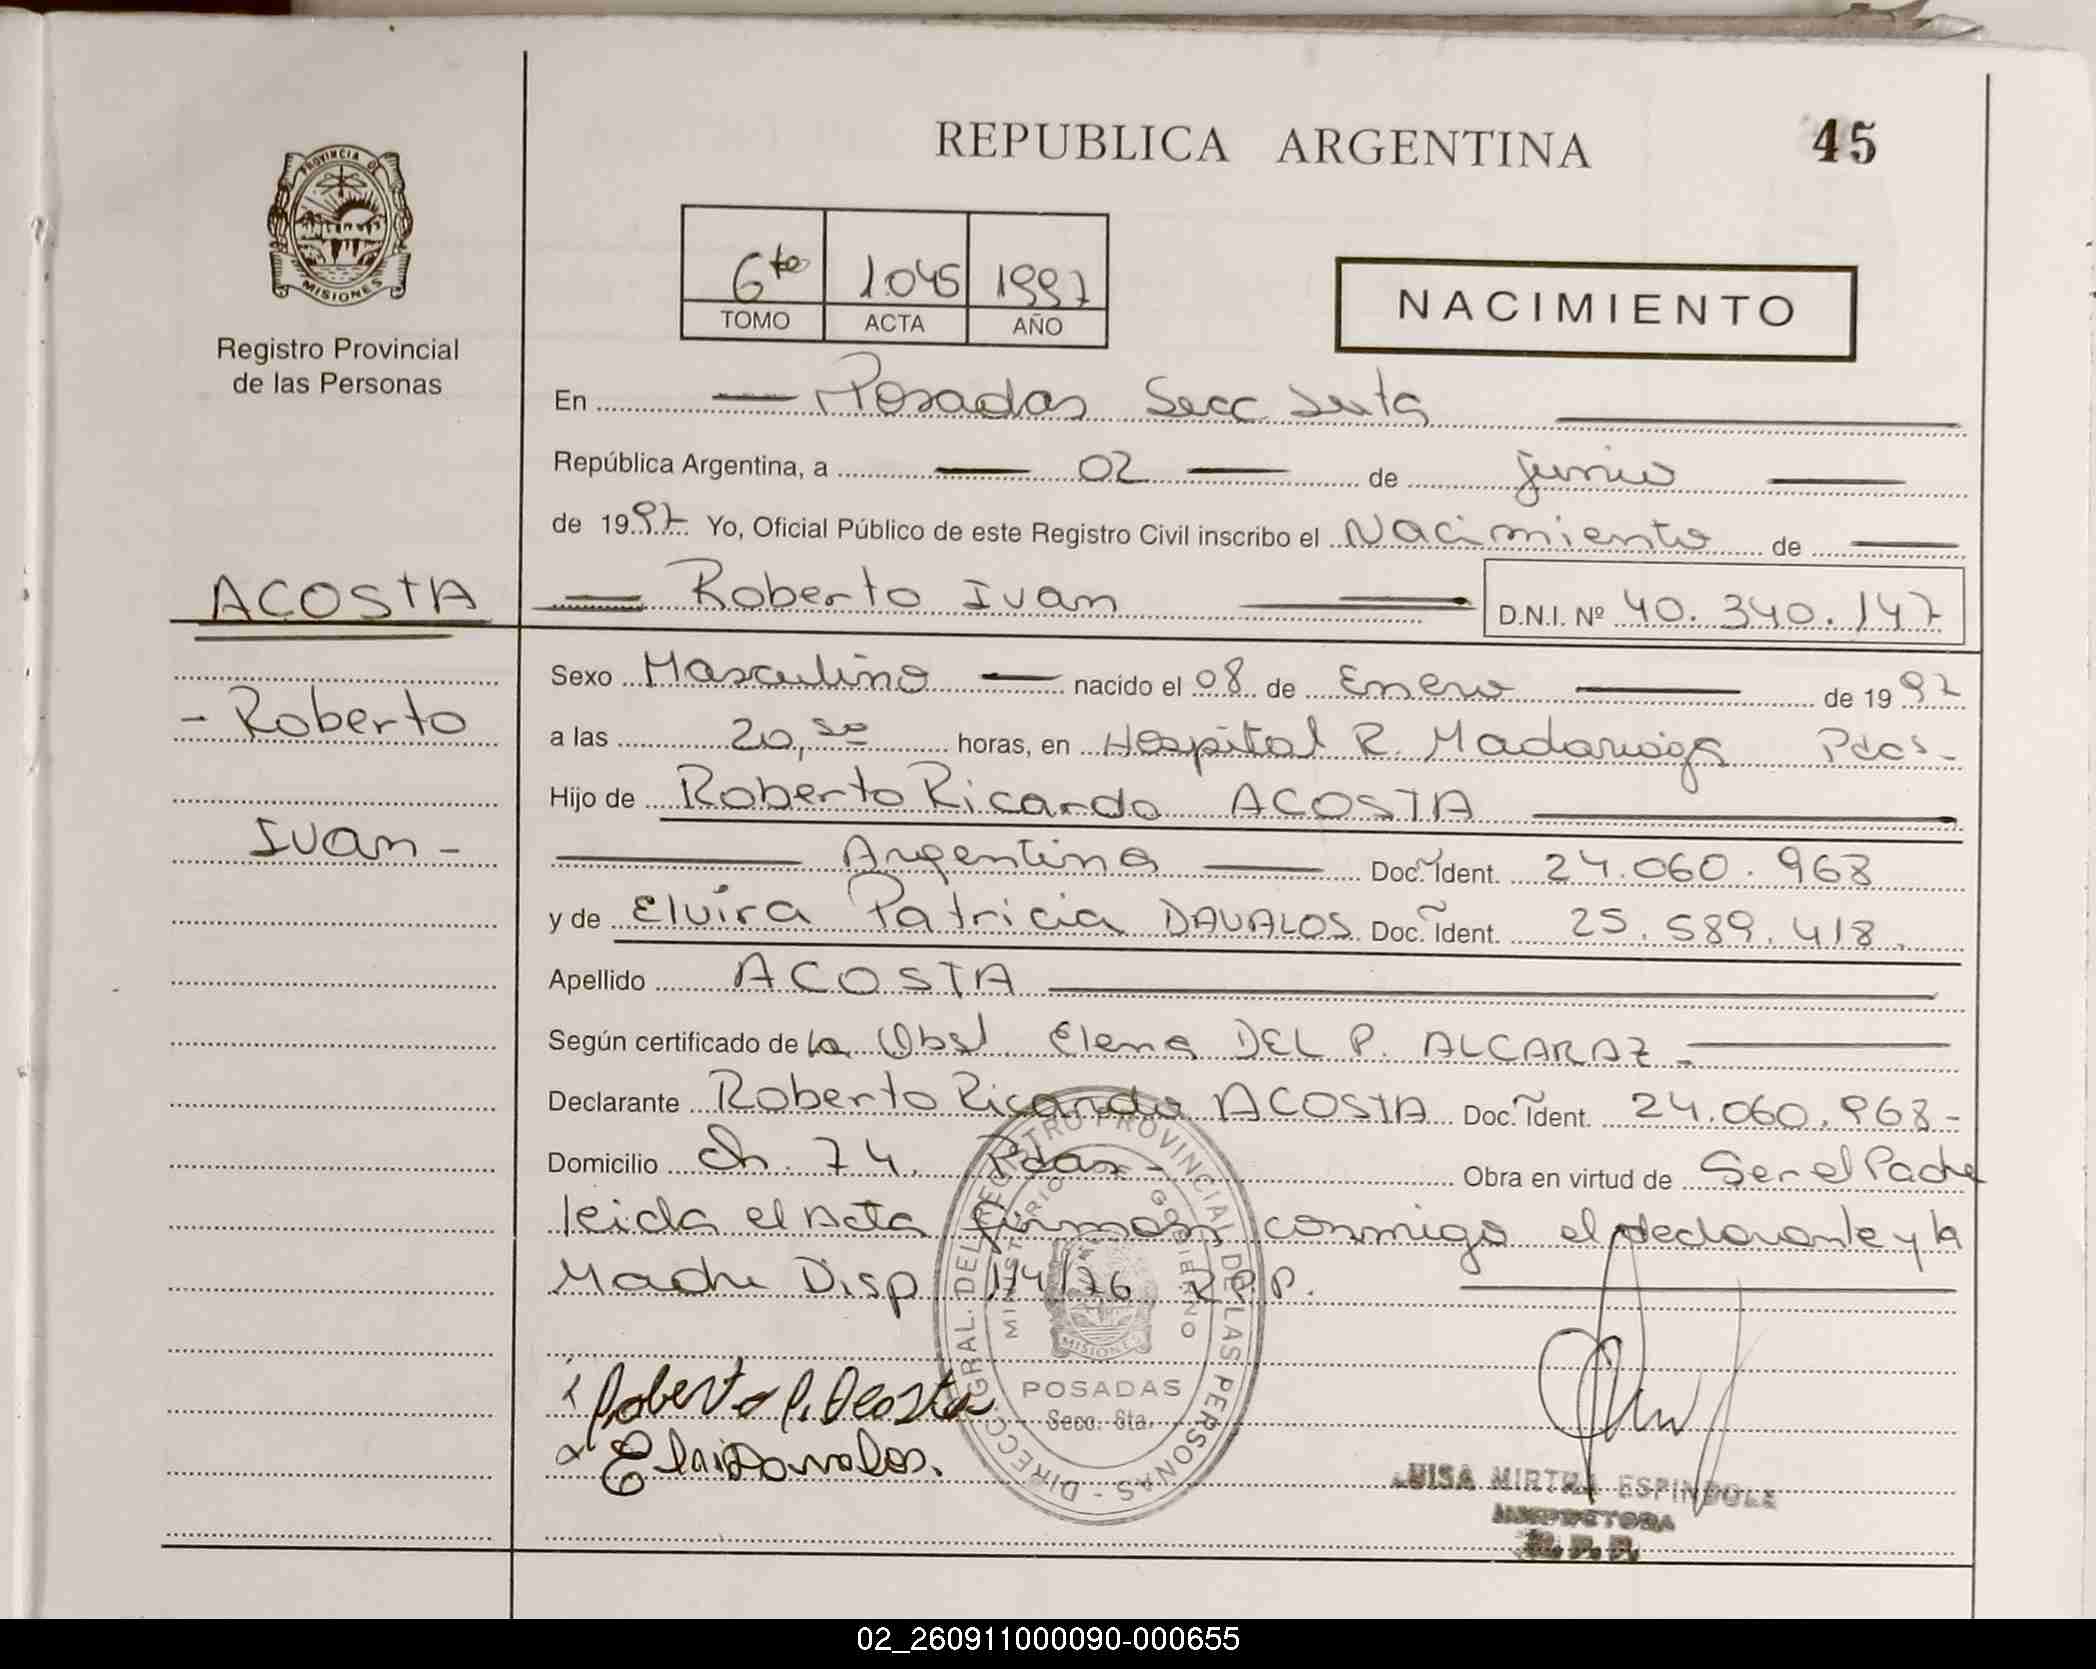 REPUBLICA ARGENTINA
45
PROVINCIA DE
MISIONES
Registro Provincial
de las Personas
6to 1.045 1997
TOMO ACTA AÑO
NACIMIENTO
En Posadas Secc Sexta
República Argentina, a 02 de junio
de 1997 Yo, Oficial Público de este Registro Civil inscribo el Nacimiento de
ACOSTA
Roberto Ivan D.N.I. Nº 40.340.147
Sexo Masculino nacido el 08 de Enero de 1997
- Roberto
a las 20,50 horas, en Hospital R. Madariaga Pdas-
Hijo de Roberto Ricardo ACOSTA
Ivan -
Argentina Doc. Ident. 24.060.968
y de Elvira Patricia DAVALOS Doc. Ident. 25.589.418.
Apellido ACOSTA
Según certificado de la Obst Elena DEL P. ALCARAZ -
Declarante Roberto Ricardo ACOSTA Doc. Ident. 24.060.968-
Domicilio Ch. 74. Pdas- Obra en virtud de Ser el Padre
leida el Acta firman conmigo el declarante y la
Madre Disp 174/76 R.P.P.
DIRECC. GRAL. DEL REGISTRO PROVINCIAL DE LAS PERSONAS -
MINISTERIO GOBIERNO
MISIONES
POSADAS
Secc. 6ta.
Roberto R. Acosta
LUISA MIRTHA ESPINDOLA
INSPECTORA
R. P. P.
02_260911000090-000655